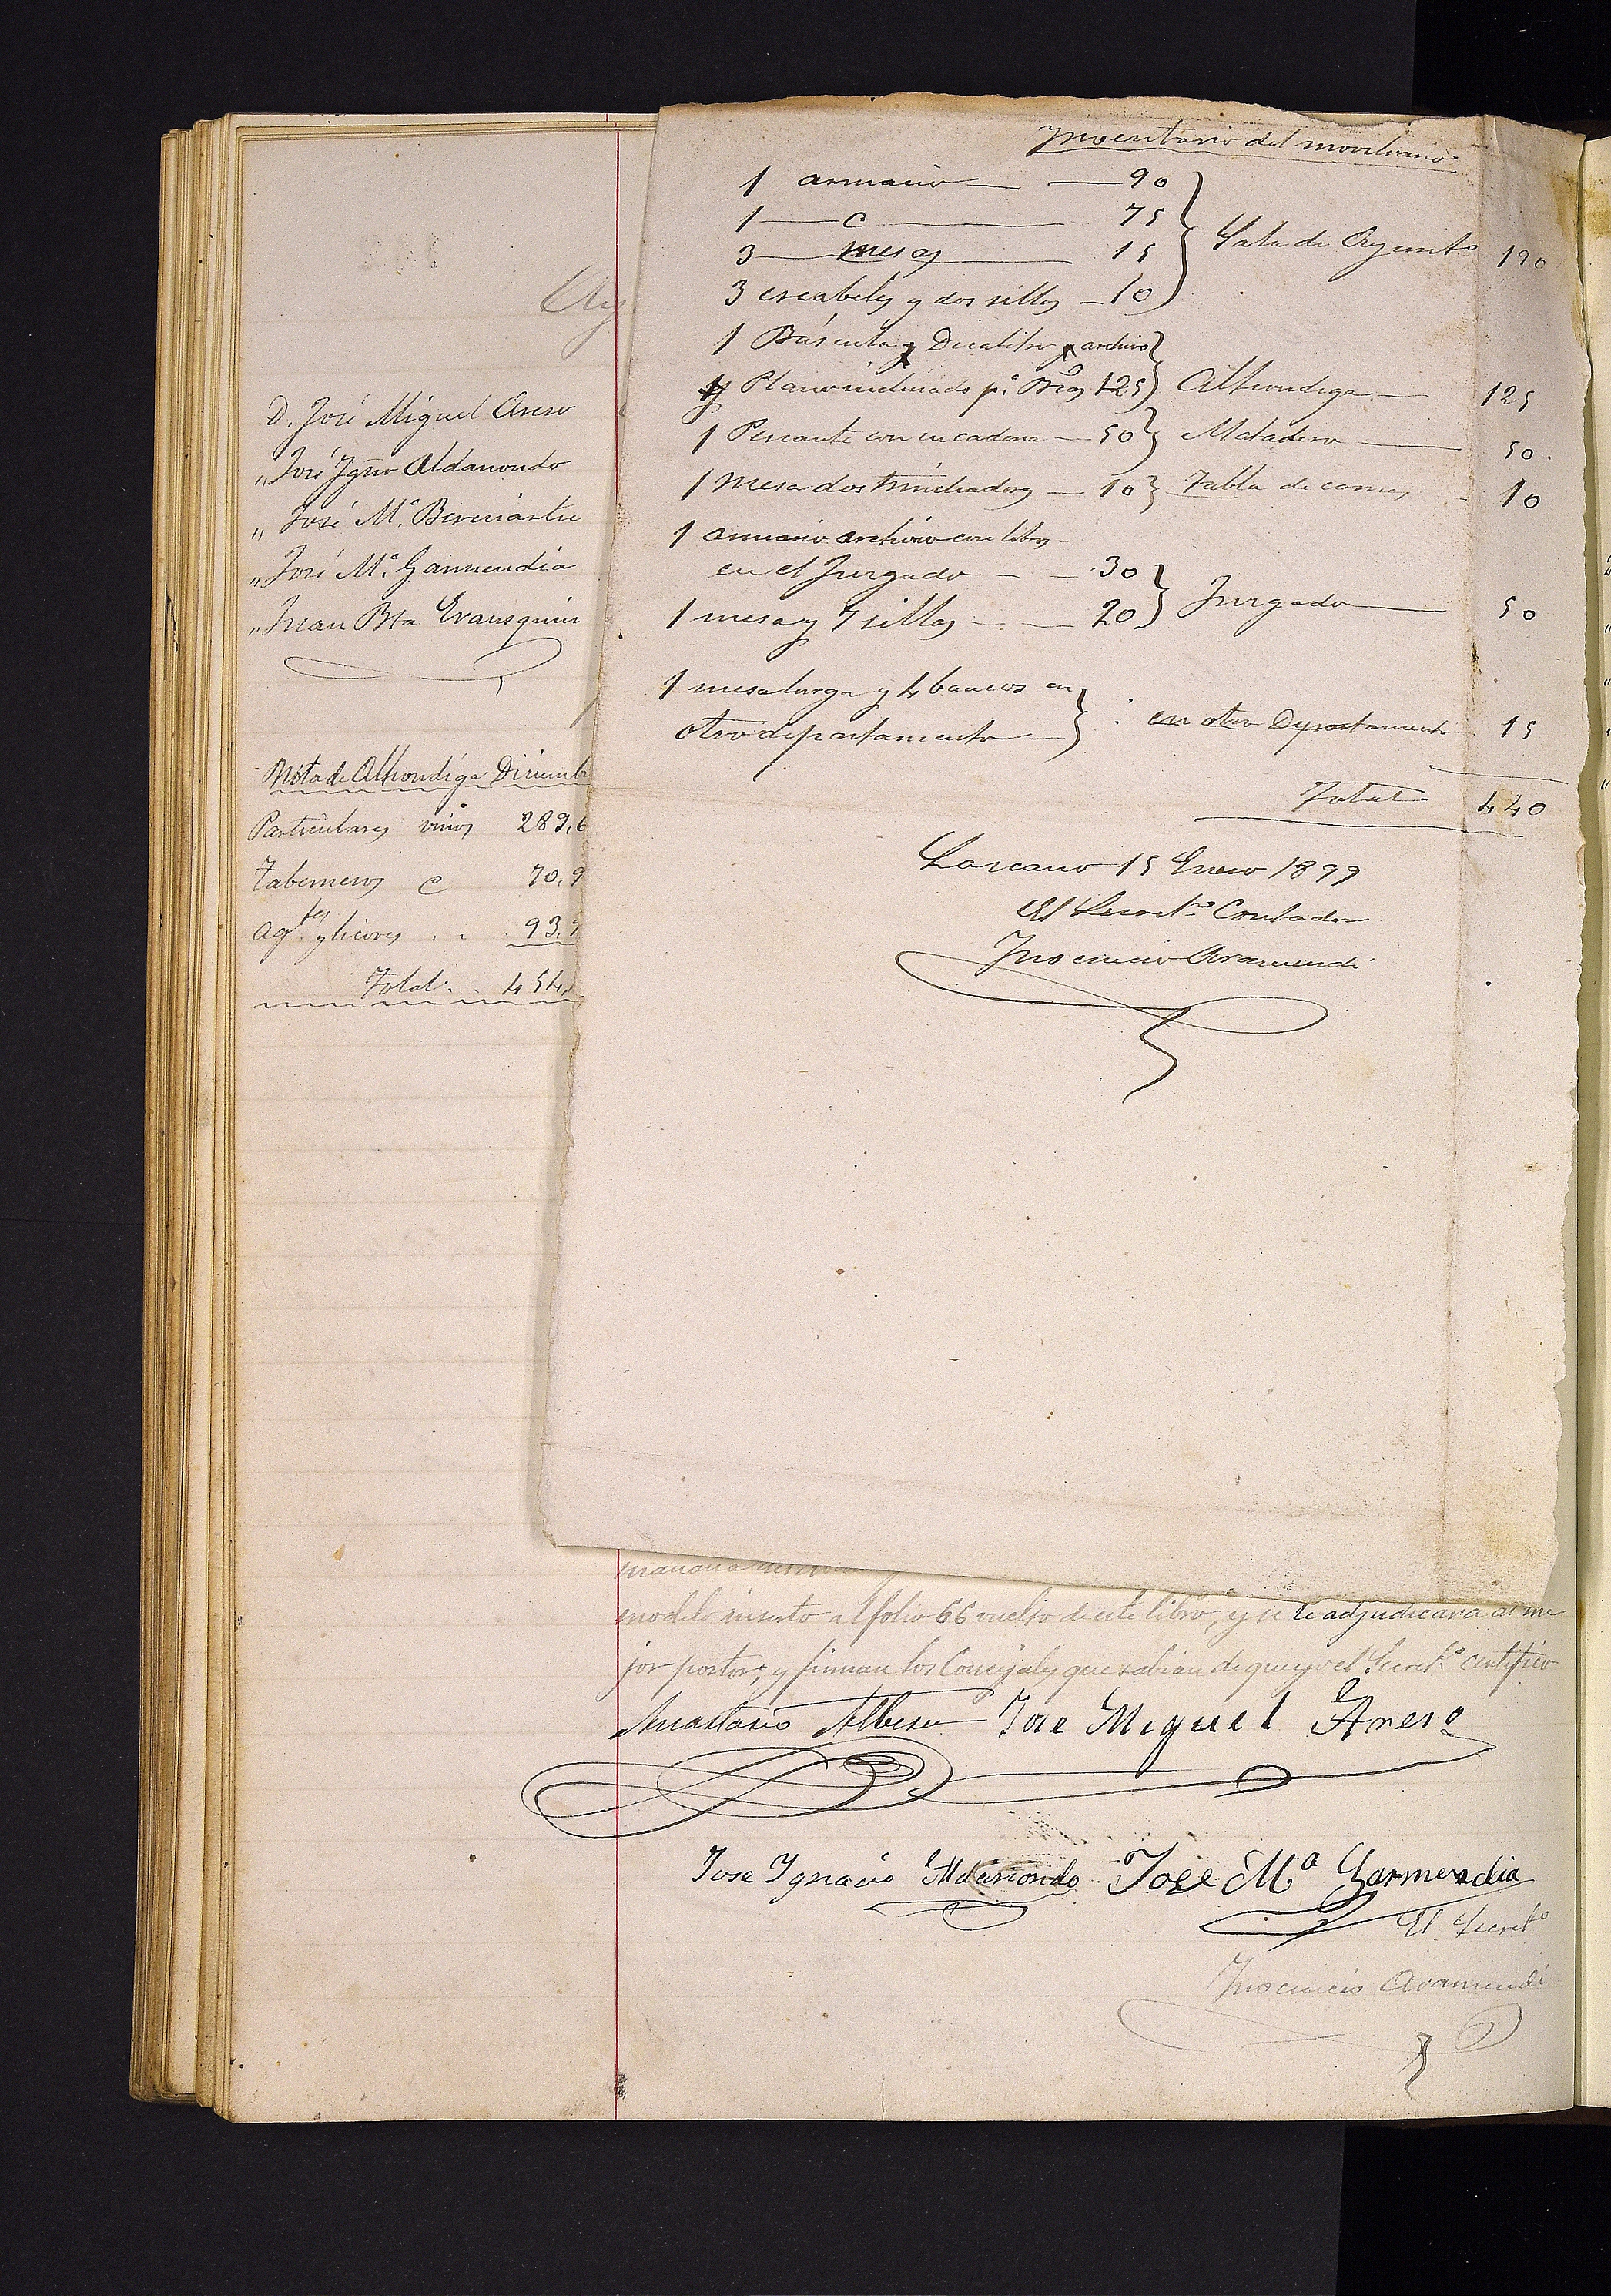 Inventario del moviliario
1 armario — 90
1 — c — 75
3 — mesas — 15
3 escabeles y dos sillas — 10
Sala de Ayunto 190
1 Báscula y Decalitro y archivo
y Plano inclinado pa. Bcas 125 Alhondiga — 125
1 Pescante con su cadena — 50 Matadero — 50.
1 Mesa dos trinchadores — 10 Tabla de carnes — 10
1 armario archivo con libros
en el Juzgado — 30
1 mesa y 7 sillas — 20 Juzgado — 50
1 mesa larga y 4 bancos en
otro departamento : en otro Departamento 15
Total 440
Lazcano 15 Enero 1899
El Secreto. Contador
Inocencio Aramendi
Ay
D. José Miguel Areso
" José Igno Aldanondo
" José Ma. Bereciartu
" José Ma. Garmendia
" Juan Bta
Nota de Alhondiga Diciemb
Particulares vinos 289,6
Taberneros c 70,9
Agtes y licores . . 93,
Total . . 454,
mañana
modelo inserto al folio 66 vuelto de este libro, y se le adjudicará al me
jor postor; y firman los Concejales que sabian de que yo el Secreto. certifico
Anastasio Alberdi Jose Miguel Areso
Jose Ygnacio Aldanondo Jose Ma Garmendia
El Secreto
Inocencio Aramendi